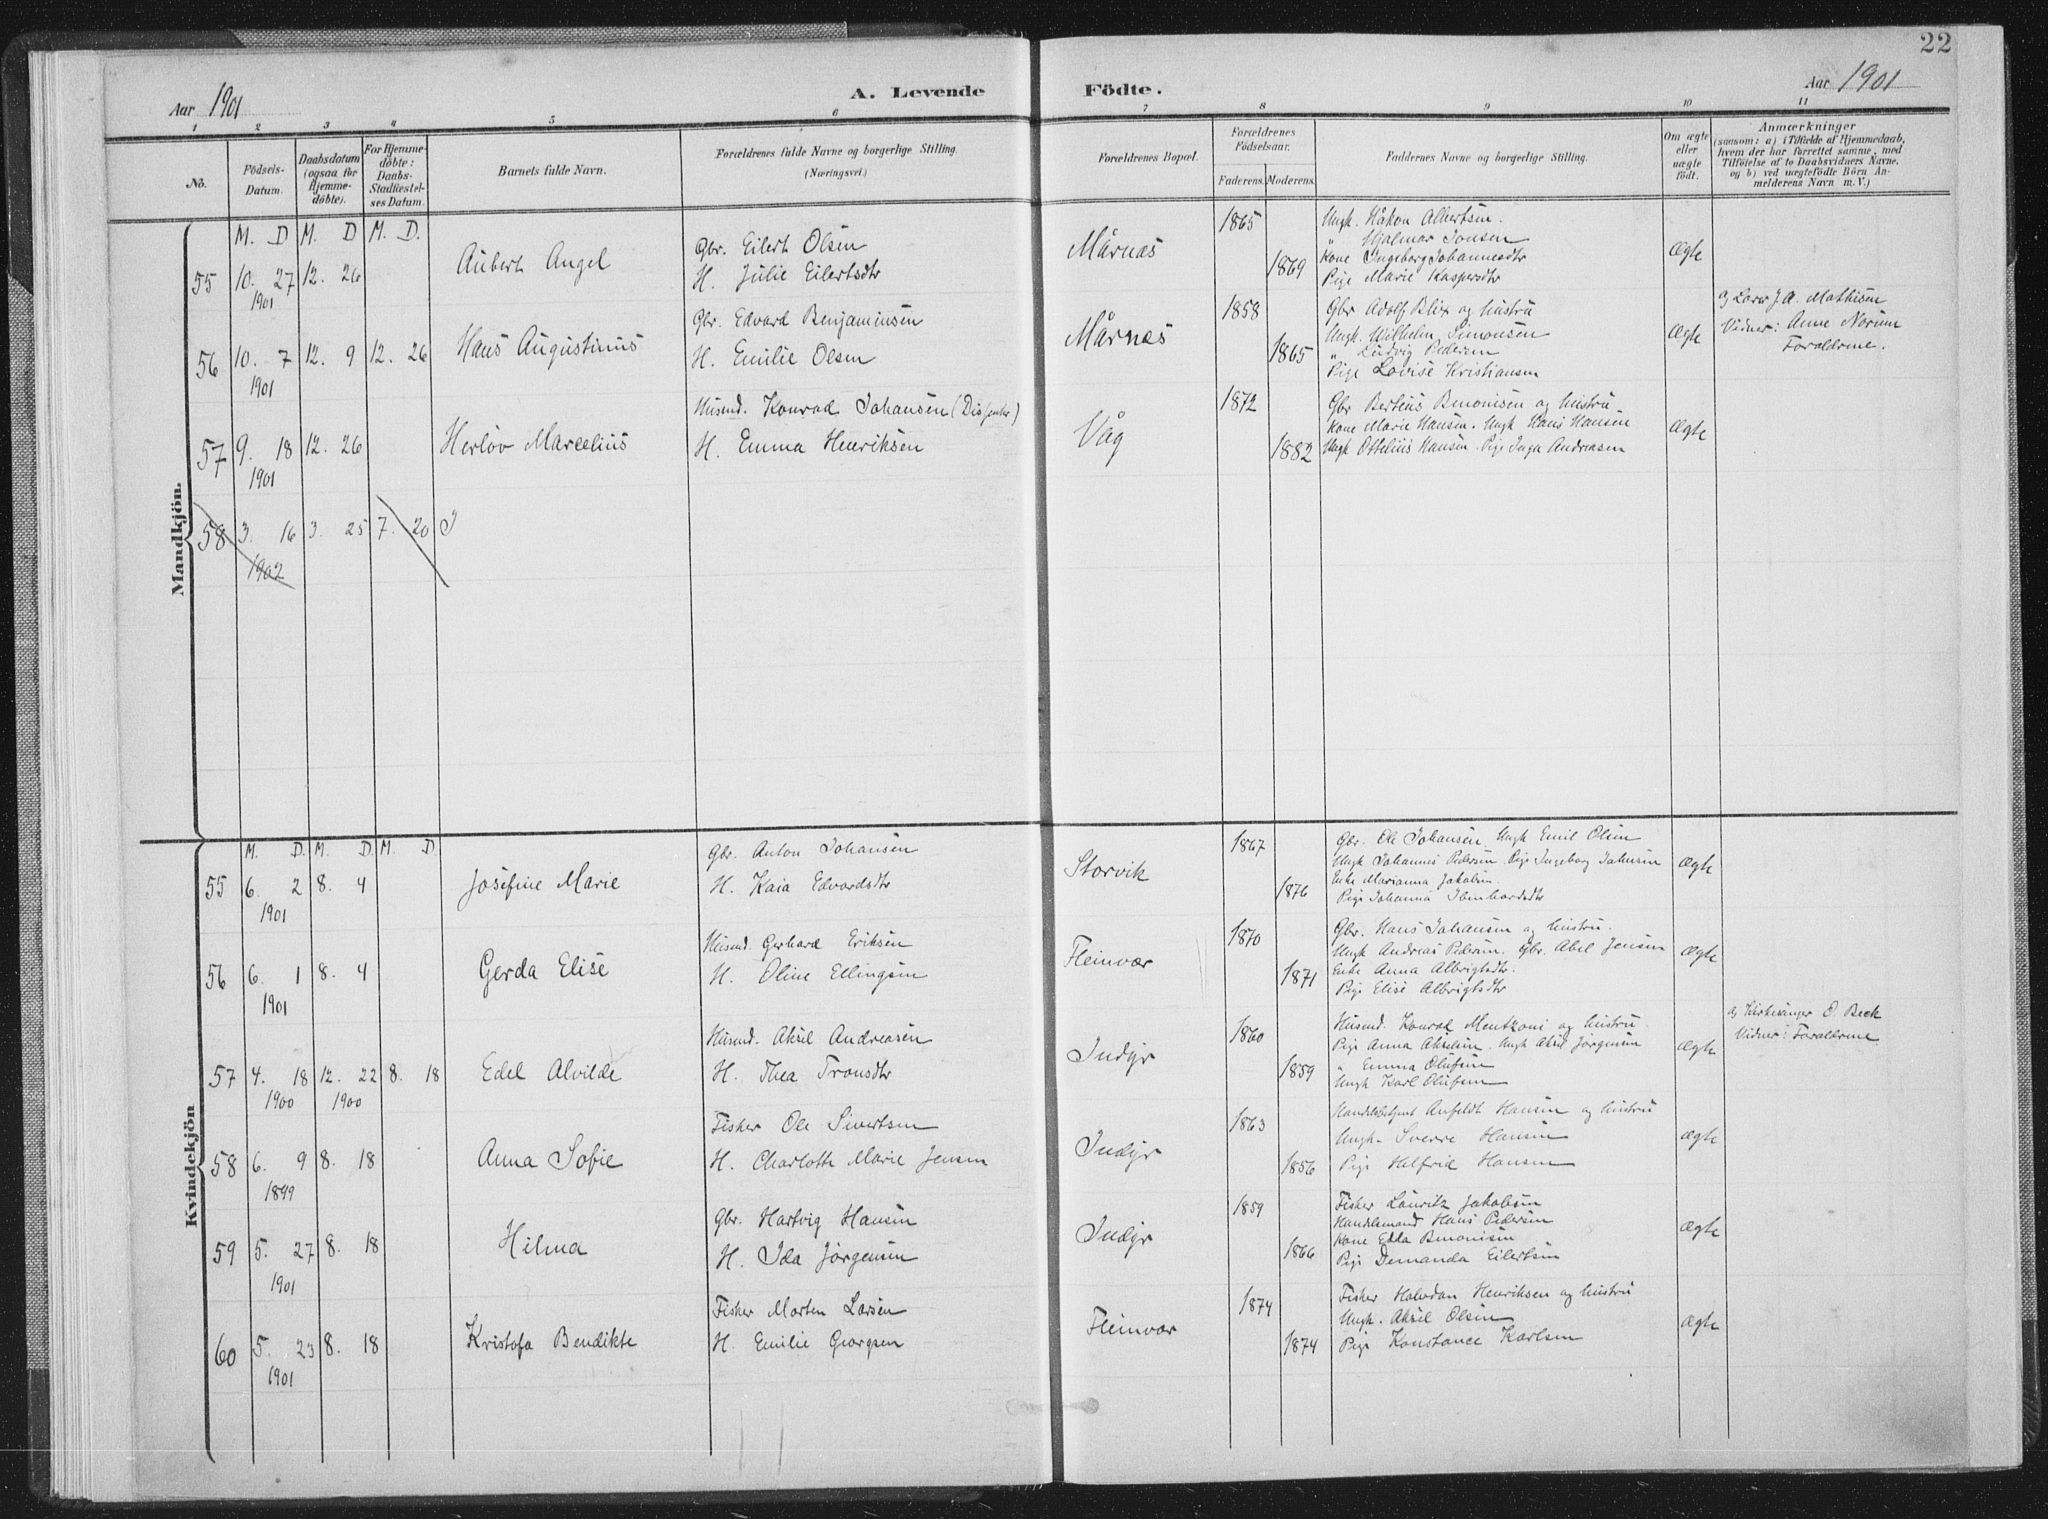 22
Aar 1901
A. Levende
Födte.
Aar 1901
1 2 3 4 5 6 7 8 9 10 11
No.
Födsels-
Datum.
Daabsdatum
(ogsaa for
Hjemme-
döbte).
For Hjemme-
döbte:
Daabs-
Stadfæstel-
ses Datum.
Barnets fulde Navn.
Forældrenes fulde Navne og borgerlige Stilling.
(Næringsvei.)
Forældrenes Bopæl.
Forældrenes
Födselsaar.
Faderens. Moderens.
Faddernes Navne og borgerlige Stilling.
Om ægte
eller
uægte
född.
Anmærkninger
(saasom: a) i Tilfælde af Hjemmedaab,
hvem der har forrettet samme, med
Tilföielse af to Daabsvidners Navne.
og b) ved uægtefödte Börn An-
melderens Navn m. V.)
Mandkjön.
M. D M. D M. D.
55 10. 27 12. 26 Aubert Angel
1901
Gbr. Eilert Olsen
H. Julie Eilertsdtr
Mårnæs
1865
1869
Ungk. Håkon Albertsen.
" Hjalmar Jonsen
Kone Ingeborg Johannesdtr
Pige Marie Kaspersdtr
Ægte
56 10. 7 12. 9 12. 26 Hans Augustinus
1901
Gbr. Edvard Benjaminsen
H. Emilie Olsen
Mårnæs
1858
1865
Gbr Adolf Blix og hustru
Ungk. Wilhelm Simonsen
" Ludvig Pedersen
Pige Lovise Kristiansen
Ægte
a) Lærer J. A. Mathisen
Vidner: Anne Norum
Forældrene.
57 9. 18 12. 26 Herlöv Marcelius
1901
Husmd. Konrad Johansen (Dissenter)
H. Emma Henriksen
Våg
1872
1882
Gbr Berteus Benonisen og hustru
Kone Marie Hansen. Ungk Hans Hansen
Ungk Ottelius Hansen. Pige Inga Andreasen
Ægte
58 3. 16 3. 25 7. 20 J
1902
Kvindekjön
M. D. M. D M. D.
55 6. 2 8. 4 Josefine Marie
1901
Gbr. Anton Johansen
H. Kaia Edvardsdtr
Storvik
1867
1876
Gbr. Ole Johansen. Ungk Emil Olsen
Ungk Johannes Pedersen Pige Ingeborg Johnsen
Enke Marianna Jakobsen
Pige Johanna
Ægte
56 6. 1 8. 4 Gerda Elise
1901
Husmd. Gerhard Eriksen
H. Oline Ellingsen
Fleinvær
1870
1871
Gbr. Hans Johansen og hustru.
Ungk Andreas Pedersen. Gbr. Abel Jensen
Enke Anna Albrigtsdtr.
Pige Elise Albrigtsdtr
Ægte
57 4. 18 12. 22 8. 18 Edel Alvilde
1900 1900
Husmd. Aksel Andreasen
H. Thea Tronsdtr
Indyr
1860
1859
Husmd. Konrad Mentzoni og hustru.
Pige Anna Akselsen. Ungk Aksel Jörgensen
" Emma Olufsen
Ungk Karl Olufsen
Ægte
a) Kirkesanger O. Beck
Vidner: Forældrene
58 6. 9 8. 18 Anna Sofie
1899
Fisker Ole Sivertsen
H. Charlotte Marie Jensen
Indyr
1863
1856
Handelsbetjent Anfeldt Hansen og hustru
Ungk. Sverre Hansen
Pige Helfrid Hansen
Ægte
59 5. 27 8. 18 Hilma
1901
Gbr. Hartvig Hansen
H. Ida Jörgensen
Indyr
1859
1866
Fisker Lauritz Jakobsen
Handlemand Hans Pedersen
Kone Edda Benonisen
Pige Demanda Eilertsen
Ægte
60 5. 23 8. 18 Kristofa Bendikte
1901
Fisker Morten Larsen
H. Emilie Georgsen
Fleinvær
1874
1874
Fisker Halvdan Henriksen og hustru
Ungk. Aksel Olsen
Pige Konstance Karlsen
Ægte